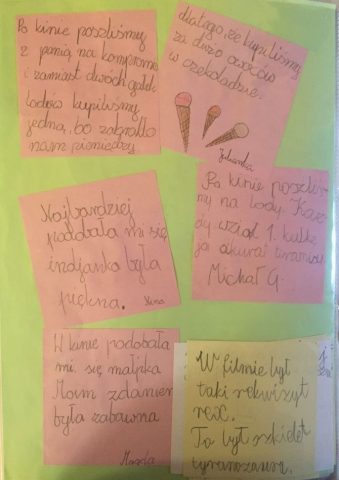 Po kinie poszliśmy
z panią na kompromis
i zamiast dwóch gałek
lodów kupiliśmy
jedną, bo zabrakło
nam pieniędzy
dlatego, że kupiliśmy
za dużo owoców
w czekoladzie.
Julianka
Po kinie poszliś-
my na lody. Każ-
dy wziął 1. kulkę
ja akurat tiramisu.
Michał G.
Najbardziej
podobała mi się
indjanka była
piękna.
W kinie podobała
mi. się małpka
Moim zdaniem
była zabawna
W filmie był
taki rekwizyt
rex.
To był szkielet
tyranozaura.